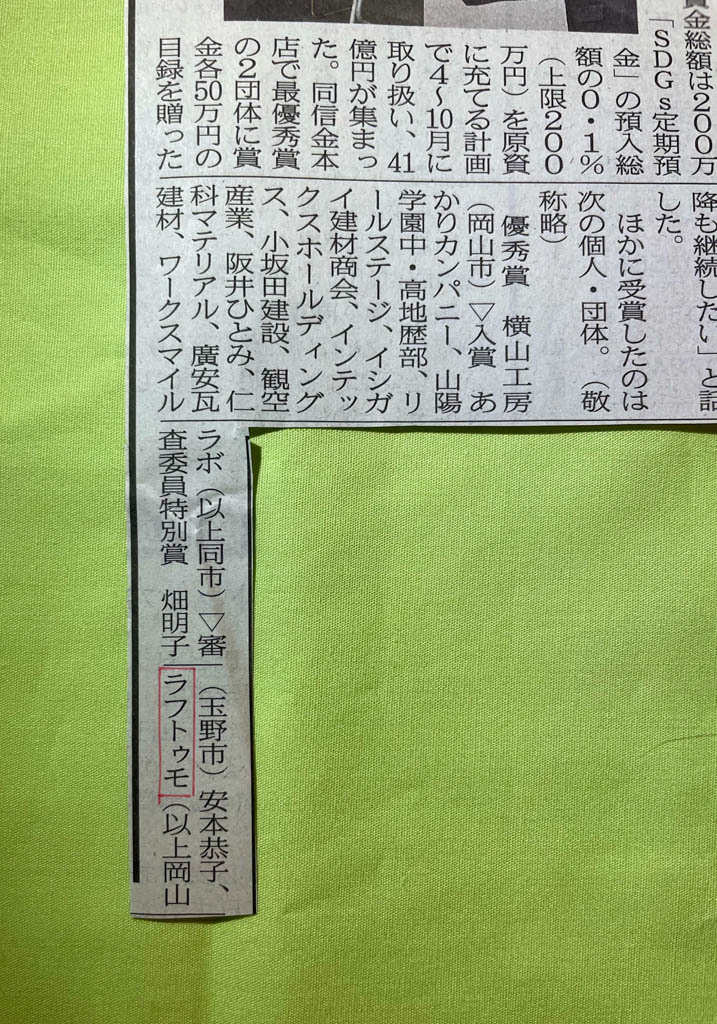 金総額は200万
「SDGs定期預
金」の預入総
額の0・1%
(上限200
万円)を原資
に充てる計画
で4〜10月に
取り扱い、41
億円が集まっ
た。同信金本
店で最優秀賞
の2団体に賞
金各50万円の
目録を贈った
降も継続したい」と
した。
ほかに受賞したのは
次の個人・団体。(敬
称略)
優秀賞 横山工房
(岡山市)▽入賞 あ
かりカンパニー、山陽
学園中・高地歴部、リ
ールステージ、イシガ
イ建材商会、インテッ
クスホールディング
ス、小坂田建設、観空
産業、阪井ひとみ、仁
科マテリアル、廣安瓦
建材、ワークスマイル
ラボ(以上同市)▽審
査委員特別賞 畑明子
(玉野市)安本恭子、
ラフトゥモ(以上岡山